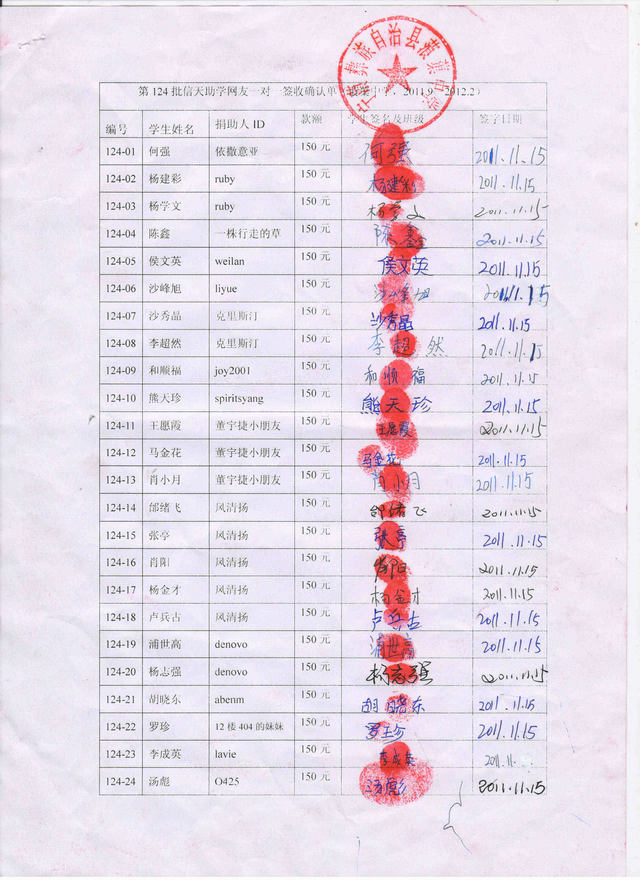 彝族自治县菠萝中学
第 124 批信天助学网友一对一签收确认单 2011.9 2012.2)
编号 学生姓名 捐助人 ID 款额 学生签名及班级 签字日期
124-01 何强 依撒意亚 150 元 何强 2011.11.15
124-02 杨建彩 ruby 150 元 杨建彩 2011.11.15
124-03 杨学文 ruby 150 元 杨学文 2011.11.15
124-04 陈鑫 一株行走的草 150 元 陈鑫 2011.11.15
124-05 侯文英 weilan 150 元 侯文英 2011.11.15
124-06 沙峰旭 liyue 150 元 沙峰旭 2011.11.15
124-07 沙秀晶 克里斯汀 150 元 沙秀晶 2011.11.15
124-08 李超然 克里斯汀 150 元 李超然 2011.11.15
124-09 和顺福 joy2001 150 元 和顺福 2011.11.15
124-10 熊天珍 spiritsyang 150 元 熊天珍 2011.11.15
124-11 王愿霞 董宇捷小朋友 150 元 王愿霞 2011.11.15
124-12 马金花 董宇捷小朋友 150 元 马金花 2011.11.15
124-13 肖小月 董宇捷小朋友 150 元 肖小月 2011.11.15
124-14 邰绪飞 风清扬 150 元 邰绪飞 2011.11.15
124-15 张亭 风清扬 150 元 张亭 2011.11.15
124-16 肖阳 风清扬 150 元 肖阳 2011.11.15
124-17 杨金才 风清扬 150 元 杨金才 2011.11.15
124-18 卢兵古 风清扬 150 元 卢兵古 2011.11.15
124-19 浦世高 denovo 150 元 浦世高 2011.11.15
124-20 杨志强 denovo 150 元 杨志强 2011.11.15
124-21 胡晓东 abenm 150 元 胡晓东 2011.11.15
124-22 罗珍 12 楼 404 的妹妹 150 元 罗珍 2011.11.15
124-23 李成英 lavie 150 元 李成英 2011.11.
124-24 汤彪 O425 150 元 汤彪 2011.11.15